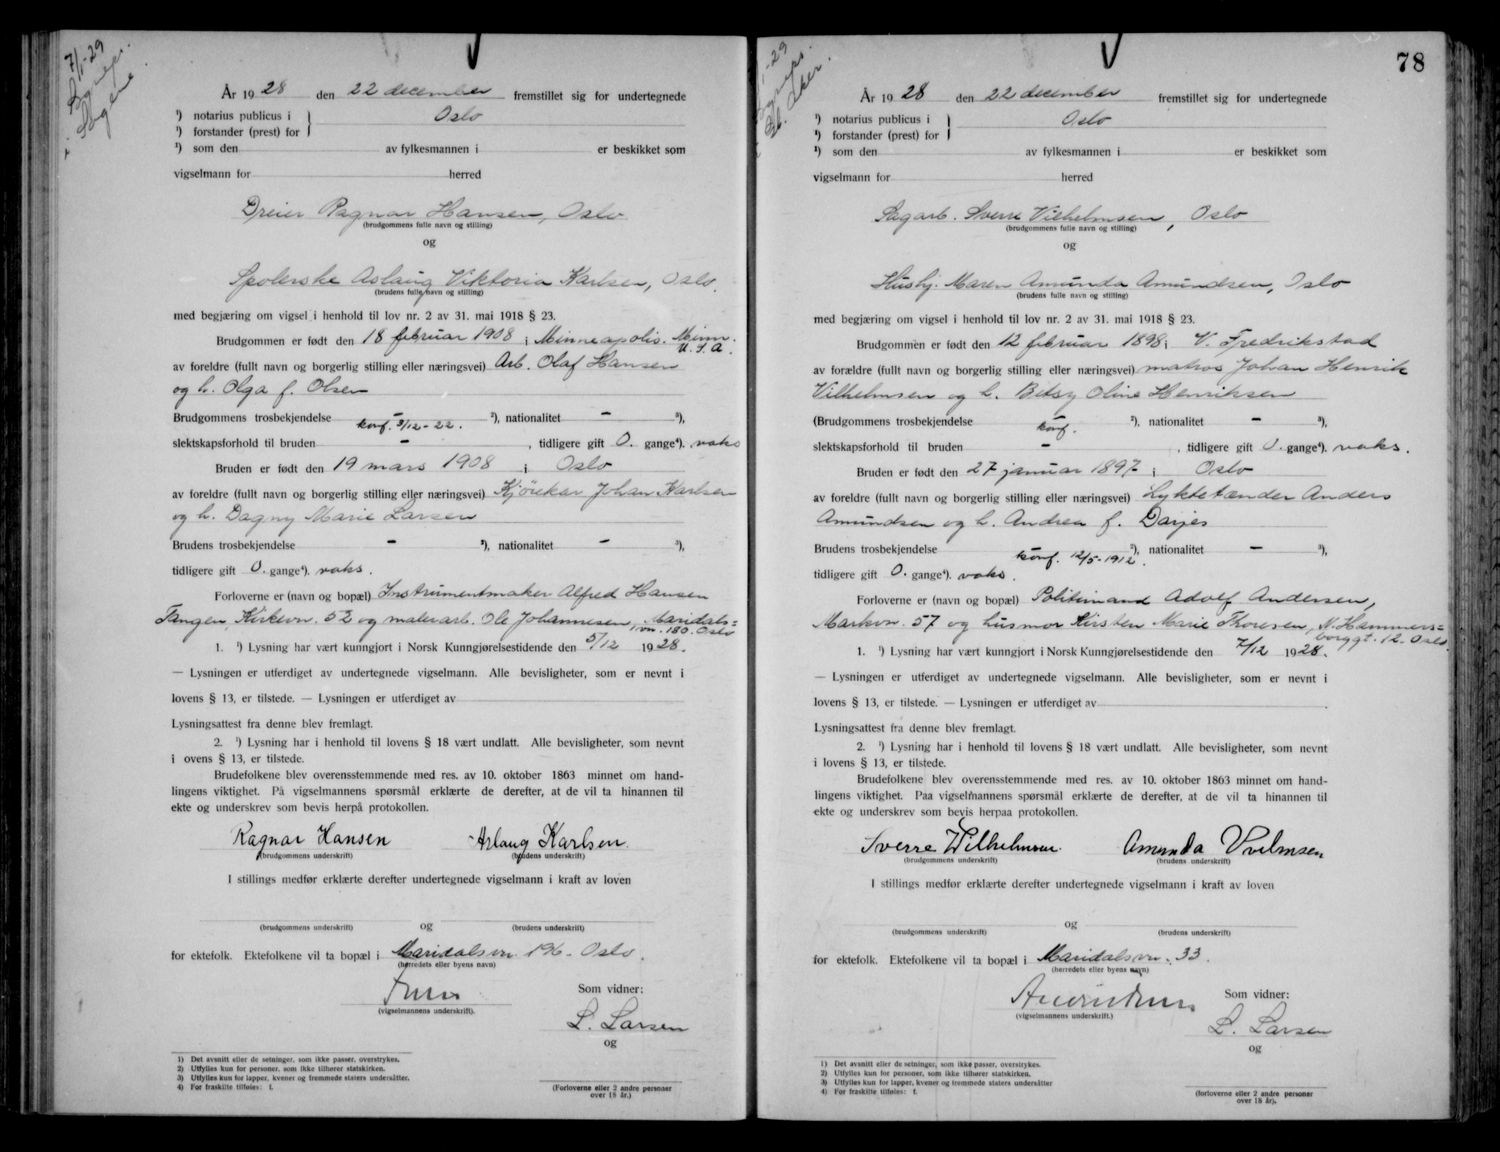 7/1-29
År 1928 den 22 december fremstillet sig for undertegnede
¹) notarius publicus i } Oslo
¹) forstander (prest) for
¹) som den av fylkesmannen i er beskikket som
vigselmann for herred
Dreier Ragnar Hansen, Oslo
(brudgommens fulle navn og stilling)
og
Spolerske Aslaug Viktoria Karlsen, Oslo.
(brudens fulle navn og stilling)
med begjæring om vigsel i henhold til lov nr. 2 av 31. mai 1918 § 23.
Brudgommen er født den 18 februar 1908 i Minneapolis. Minn.
U.S.A.
av forældre (fullt navn og borgerlig stilling eller næringsvei) Arb. Olaf Hansen
og h. Olga f. Olsen
Brudgommens trosbekjendelse – konf. 3/12-22. ²), nationalitet – ³),
slektskapsforhold til bruden – , tidligere gift 0. gange⁴). vaks
Bruden er født den 19 mars 1908 i Oslo
av foreldre (fullt navn og borgerlig stilling eller næringsvei) Kjørekar Johan Karlsen
og h. Dagny Marie Larsen
Brudens trosbekjendelse – ²), nationalitet – ³),
tidligere gift 0. gange⁴). vaks.
Forloverne er (navn og bopæl) Instrumentmaker Alfred Hansen
Tangen, Kirkevn. 52 og malerarb. Ole Johannesen, Maridals=
vn. 180. Oslo
1. ¹) Lysning har vært kunngjort i Norsk Kunngjørelsestidende den 5/12 1928.
— Lysningen er utferdiget av undertegnede vigselmann. Alle bevisligheter, som er nevnt i
lovens § 13, er tilstede. — Lysningen er utferdiget av
Lysningsattest fra denne blev fremlagt.
2. ¹) Lysning har i henhold til lovens § 18 vært undlatt. Alle bevisligheter, som nevnt
i ovens § 13, er tilstede.
Brudefolkene blev overensstemmende med res. av 10. oktober 1863 minnet om hand-
lingens viktighet. På vigselmannens spørsmål erklærte de derefter, at de vil ta hinannen til
ekte og underskrev som bevis herpå protokollen.
Ragnar Hansen Aslaug Karlsen.
(brudgommens underskrift) (brudens underskrift)
I stillings medfør erklærte derefter undertegnede vigselmann i kraft av loven
og
(brudgommens underskrift) (brudens underskrift)
for ektefolk. Ektefolkene vil ta bopæl i Maridalsvn. 196. Oslo.
(herredets eller byens navn)
Som vidner:
(vigselmannens underskrift).
L. Larsen
og
1) Det avsnitt eller de setninger, som ikke passer, overstrykes.
2) Utfylles kun for personer, som ikke tilhører statskirken.
3) Utfylles kun for lapper, kvener og fremmede staters undersåtter.
4) For fraskilte tilføies: f.
(Forloverne eller 2 andre personer
over 18 år.)
78
År 1928 den 22 december fremstillet sig for undertegnede
¹) notarius publicus i } Oslo
¹) forstander (prest) for
¹) som den av fylkesmannen i er beskikket som
vigselmann for herred
Sagarb. Sverre Vilhelmsen, Oslo
(brudgommens fulle navn og stilling)
og
Husbj. Maren Amunda Amundsen, Oslo
(brudens fulle navn og stilling)
med begjæring om vigsel i henhold til lov nr. 2 av 31. mai 1918 § 23.
Brudgommen er født den 12 februar 1898 i V. Fredrikstad
av forældre (fullt navn og borgerlig stilling eller næringsvei) matros Johan Henrik
Vilhelmsen og h. Betsy Oline Henriksen
(Brudgommens trosbekjendelse konf. ²), nationalitet – ³),
slektskapsforhold til bruden – , tidligere gift 0. gange⁴). vaks.
Bruden er født den 27 januar 1897 i Oslo
av foreldre (fullt navn og borgerlig stilling eller næringsvei) Lyktetænder Anders
Amundsen og h. Andrea f. Darjes
Brudens trosbekjendelse konf. 12/5-1912. ²), nationalitet – ³),
tidligere gift 0. gange⁴). vaks.
Forloverne er (navn og bopæl) Politimand Adolf Andersen,
Markvn. 57 og husmor Kirsten Marie Thoresen, N. Hammers=
borggt. 12. Oslo.
1. ¹) Lysning har vært kunngjort i Norsk Kunngjørelsestidende den 7/12 1928.
— Lysningen er utferdiget av undertegnede vigselmann. Alle bevisligheter, som er nevnt i
lovens § 13, er tilstede. — Lysningen er utferdiget av
Lysningsattest fra denne blev fremlagt.
2. ¹) Lysning har i henhold til lovens § 18 vært undlatt. Alle bevisligheter, som nevnt
i lovens § 13, er tilstede.
Brudefolkene blev overensstemmende med res. av 10. oktober 1863 minnet om hand-
lingens viktighet. Paa vigselmannens spørsmål erklærte de derefter, at de vil ta hinannen til
ekte og underskrev som bevis herpaa protokollen.
Sverre Wilhelmsen. Amunda Vvilmsen
(brudgommens underskrift) (brudens underskrift)
I stillings medfør erklærte derefter undertegnede vigselmann i kraft av loven
og
(brudgommens underskrift) (brudens underskrift)
for ektefolk. Ektefolkene vil ta bopæl i Maridalsvn. 33.
(herredets eller byens navn)
Som vidner:
(vigselmannens underskrift.)
L. Larsen
og
1) Det avsnitt eller de setninger, som ikke passer, overstrykes.
2) Utfylles kun for personer, som ikke tilhører statskirken.
3) Utfylles kun for lapper, kvener og fremmede staters undersåtter
4) For fraskilte tilføies: f.
(forloverne eller 2 andre personer
over 18 år.)